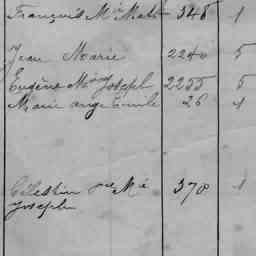 François Mie Math 348 1
Jean Marie 2240 5
Eugène Mie Joseph 2255 5
Marie ange Emile 26 1
Célestin Mie 378 1
Joseph